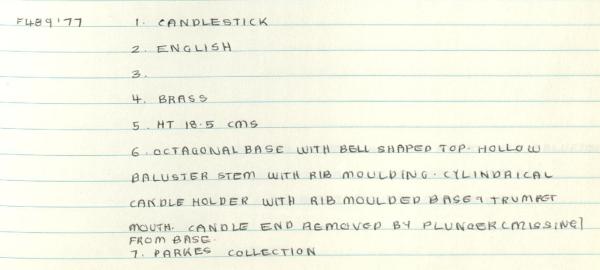 F489'77 1. CANDLESTICK
2. ENGLISH
3.
4. BRASS
5. HT 18.5 CMS
6. OCTAGONAL BASE WITH BELL SHAPED TOP. HOLLOW
BALUSTER STEM WITH RIB MOULDING. CYLINDRICAL
CANDLE HOLDER WITH RIB MOULDED BASE & TRUMPET
MOUTH. CANDLE END REMOVED BY PLUNGER (MISSING)
FROM BASE.
7. PARKES COLLECTION